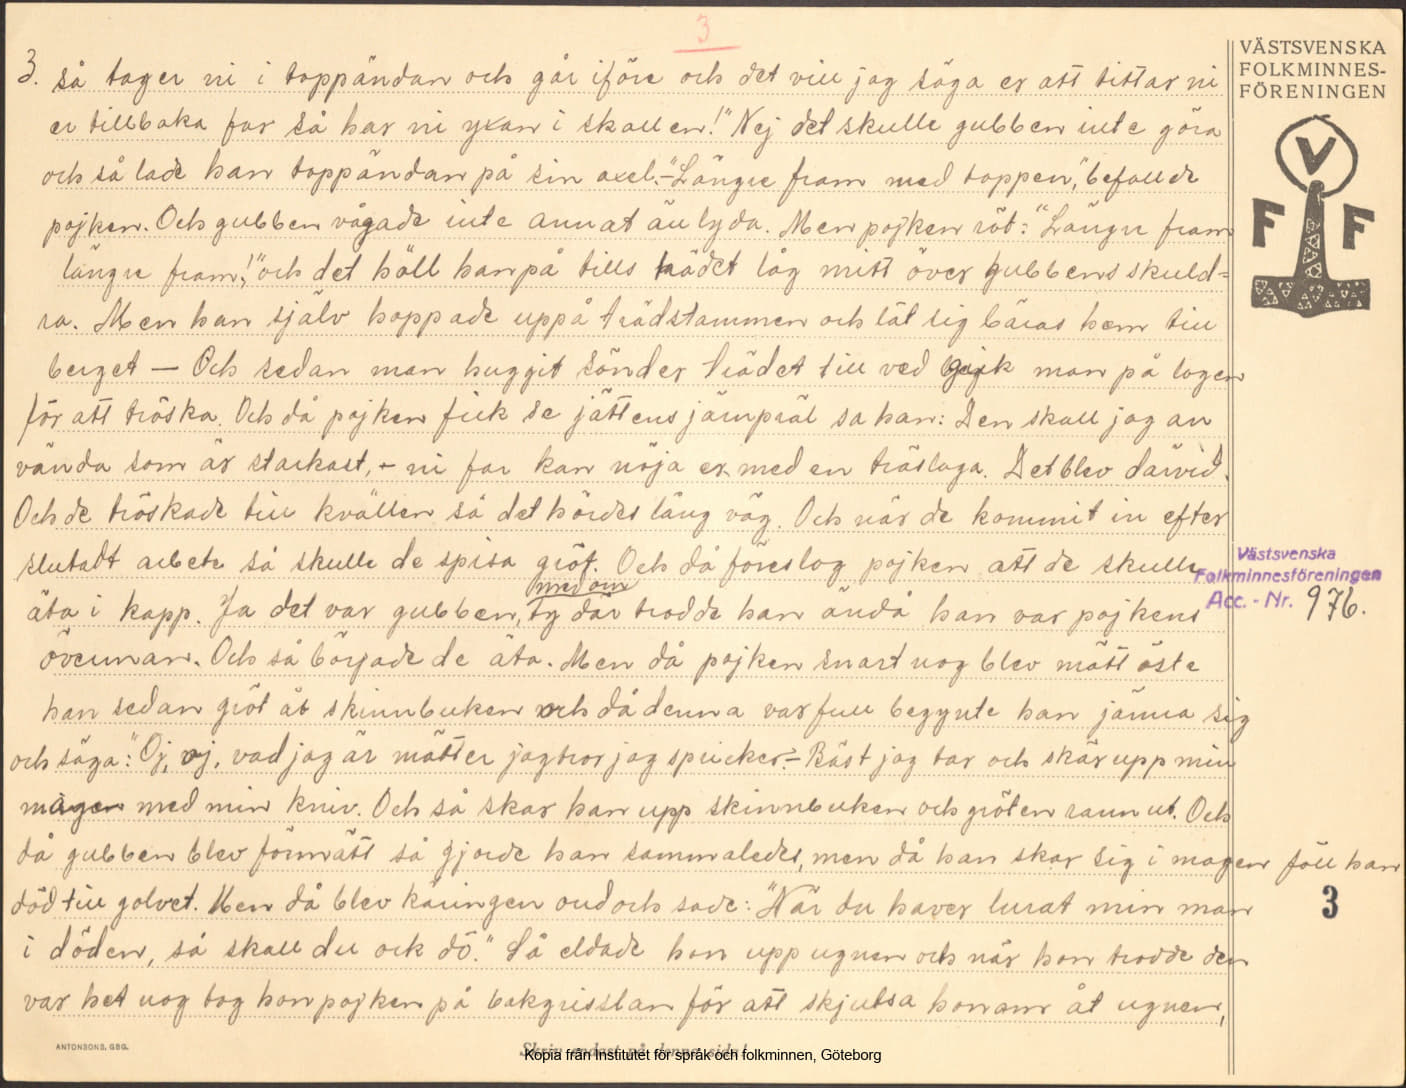 3
3.
VÄSTSVENSKA
FOLKMINNES-
FÖRENINGEN
V
F F
så tager ni i toppändan och går iföre och det vill jag säga er att tittar ni
er tillbaka far så har ni yxan i skallen!" Nej det skulle gubben inte göra
och så lade han toppändan på sin axel.-"Längre fram med toppen," befallde
pojken. Och gubben vågade inte annat än lyda. Men pojken röt: "Längre fram
längre fram!," och det höll han på tills trädet låg mitt över gubbens skuld=
ra. Men han själv hoppade uppå trädstammen och lät sig bäras hem till
berget — Och sedan man huggit sönder trädet till ved gick man på logen
för att tröska. Och då pojken fick se jättens järnpräl sa han: Den skall jag an
vända som är starkast, - ni far kan nöja er med en träslaga. Det blev därvid.
Och de tröskade till kvällen så det hördes lång väg. Och när de kommit in efter
slutadt arbete så skulle de spisa gröt. Och då föreslog pojken att de skulle
Västsvenska
Folkminnesföreningen
Acc. - Nr. 976.
med om
äta i kapp. Ja det var gubben, ty där trodde han ändå han var pojkens
överman. Och så började de äta. Men då pojken snart nog blev mätt öste
han sedan gröt åt skinnbuken och då denna var full begynte han jämra sig
och säga: "Oj, oj, vad jag är mätter jag tror jag spricker.- Bäst jag tar och skär upp min
magen med min kniv. Och så skar han upp skinnbuken och gröten rann ut. Och
då gubben blev förmätt så gjorde han sammaledes, men då han skar sig i magen föll han
död till golvet. Men då blev käringen ond och sade: "När du haver lurat min man
3
i döden, så skall du ock dö." Så eldade hon upp ugnen och när hon trodde den
var het nog tog hon pojken på bakgrisslan för att skjutsa honom åt ugnen,
ANTONSONS, GBG.
Skriv endast på denna sida!
Kopia från Institutet för språk och folkminnen, Göteborg